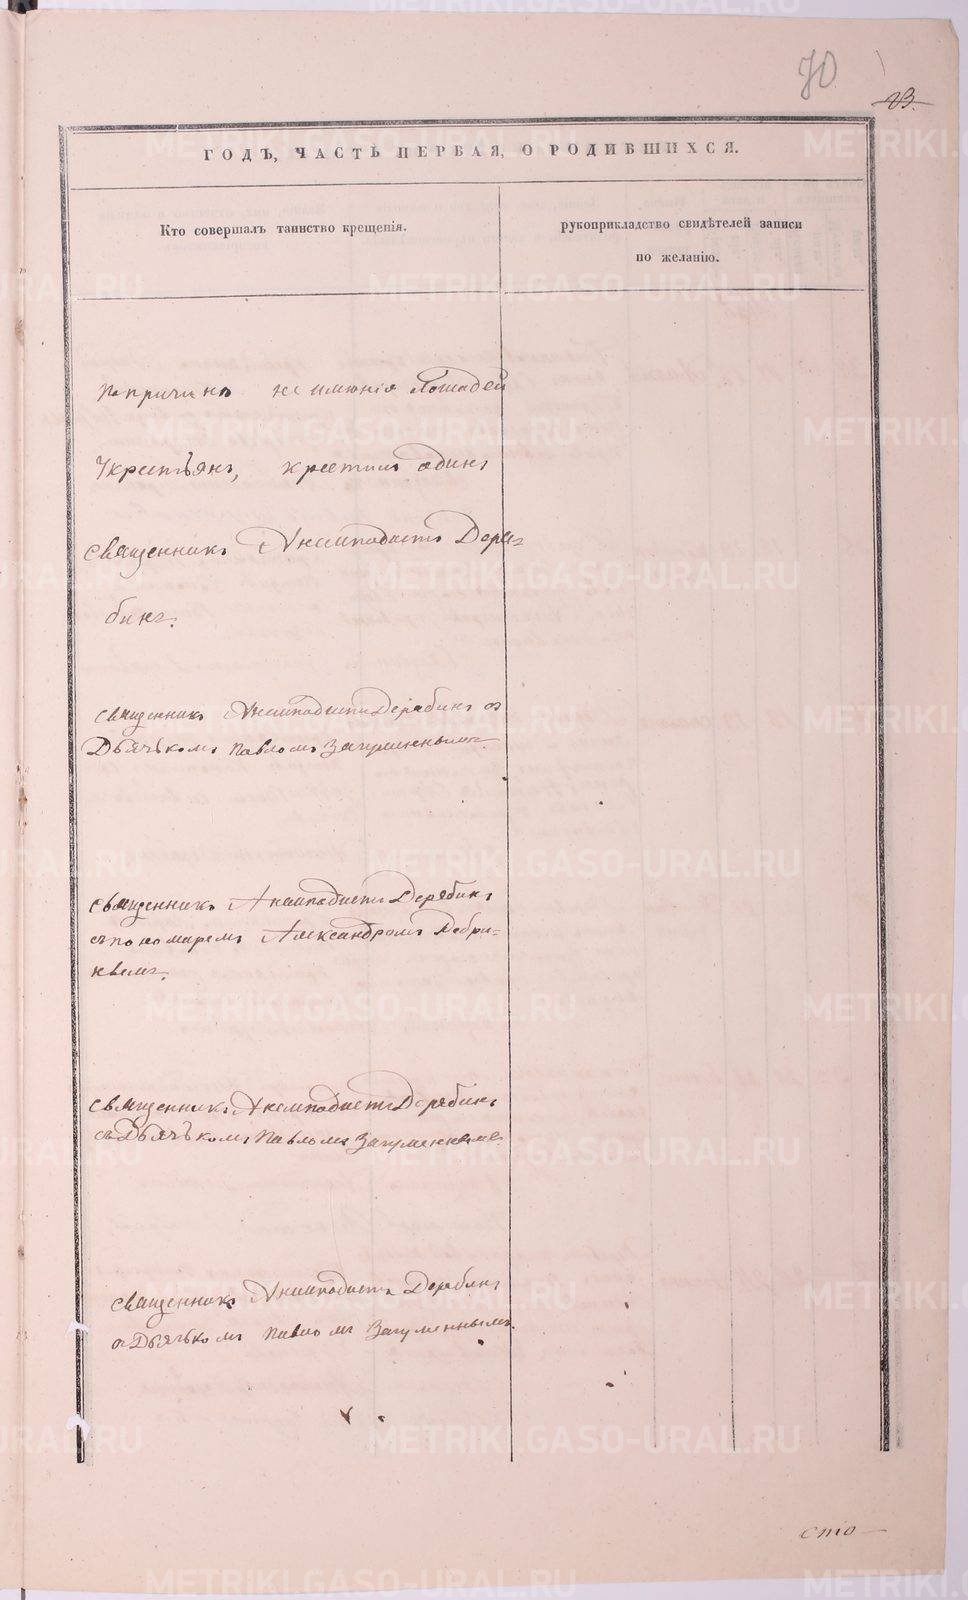 70
23.
ГОДЪ, ЧАСТЬ ПЕРВАЯ, О РОДИВШИХСЯ.
Кто совершалъ таинство крещенія.
рукоприкладство свидѣтелей записи
по желанію.
по причинѣ не имѣнія Лошадей
Укрестьянъ, крестилъ одинъ
священникъ Анемподистъ Деря-
бинъ.
священникъ Анемподистъ Дерябинъ съ
Дьячькомъ Павломъ Загуменнымъ.
священникъ Анемподистъ Дерябинъ
съ пономаремъ Александромъ Добри-
нымъ.
священникъ Анемподистъ Дерябинъ
съ Дьячькомъ Павломъ Загуменнымъ.
священникъ Анемподистъ Дерябинъ
съ Дьячькомъ Павломъ Загуменнымъ.
сто
METRIKI.GASO-URAL.RU